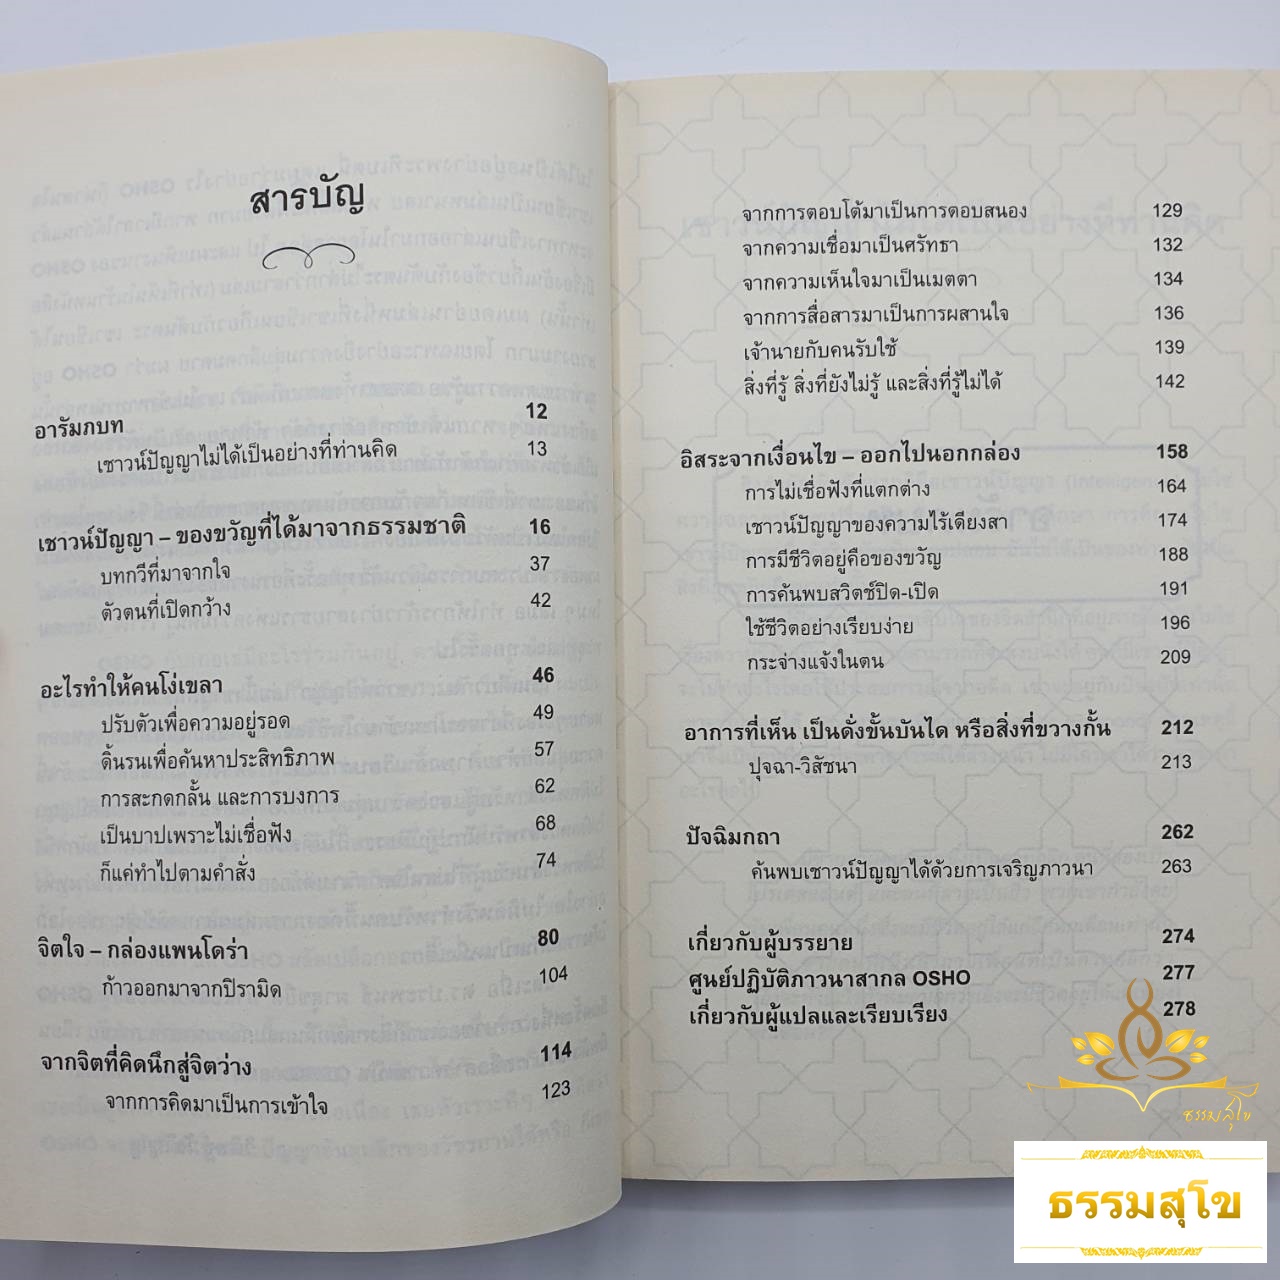 สารบัญ
อารัมภบท 12
เชาวน์ปัญญาไม่ได้เป็นอย่างที่ท่านคิด 13
เชาวน์ปัญญา – ของขวัญที่ได้มาจากธรรมชาติ 16
บทกวีที่มาจากใจ 37
ตัวตนที่เปิดกว้าง 42
อะไรทำให้คนโง่เขลา 46
ปรับตัวเพื่อความอยู่รอด 49
ดิ้นรนเพื่อค้นหาประสิทธิภาพ 57
การสะกดกลั้น และการบงการ 62
เป็นบาปเพราะไม่เชื่อฟัง 68
ก็แค่ทำไปตามคำสั่ง 74
จิตใจ – กล่องแพนโดร่า 80
ก้าวออกมาจากปิรามิด 104
จากจิตที่คิดนึกสู่จิตว่าง 114
จากการคิดมาเป็นการเข้าใจ 123
จากการตอบโต้มาเป็นการตอบสนอง 129
จากความเชื่อมาเป็นศรัทธา 132
จากความเห็นใจมาเป็นเมตตา 134
จากการสื่อสารมาเป็นการผสานใจ 136
เจ้านายกับคนรับใช้ 139
สิ่งที่รู้ สิ่งที่ยังไม่รู้ และสิ่งที่รู้ไม่ได้ 142
อิสระจากเงื่อนไข – ออกไปนอกกล่อง 158
การไม่เชื่อฟังที่แตกต่าง 164
เชาวน์ปัญญาของความไร้เดียงสา 174
การมีชีวิตอยู่คือของขวัญ 188
การค้นพบสวิตช์ปิด-เปิด 191
ใช้ชีวิตอย่างเรียบง่าย 196
กระจ่างแจ้งในตน 209
อาการที่เห็น เป็นดั่งขั้นบันได หรือสิ่งที่ขวางกั้น 212
ปุจฉา-วิสัชนา 213
ปัจฉิมกถา 262
ค้นพบเชาวน์ปัญญาได้ด้วยการเจริญภาวนา 263
เกี่ยวกับผู้บรรยาย 274
ศูนย์ปฏิบัติภาวนาสากล OSHO 277
เกี่ยวกับผู้แปลและเรียบเรียง 278
ธรรมสุโข
ธรรมสุโข